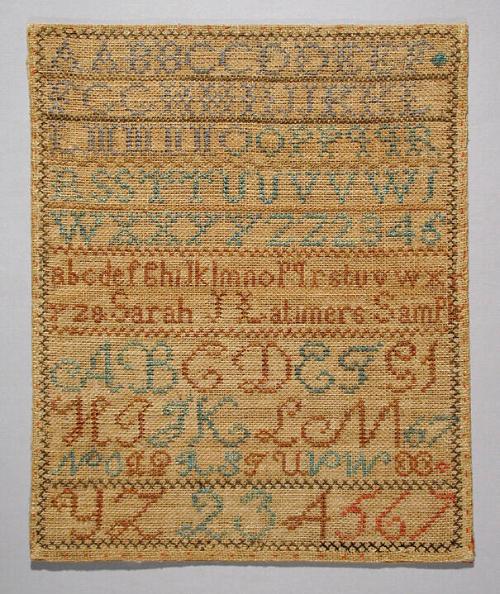 A A B B C C D D E E F
F G G H H I I J J K K L
L M M N N O O P P Q Q R
R S S T T U U V V W I
W X X Y Y Z Z 2 3 4 6
abcdefghiJklmnopqrstuvwx
yz& Sarah J Latimers Sampl
A B C D E F G I
H I J K L M 67
N O P Q R S T U V W X
Y Z 2 3 4 5 6 7